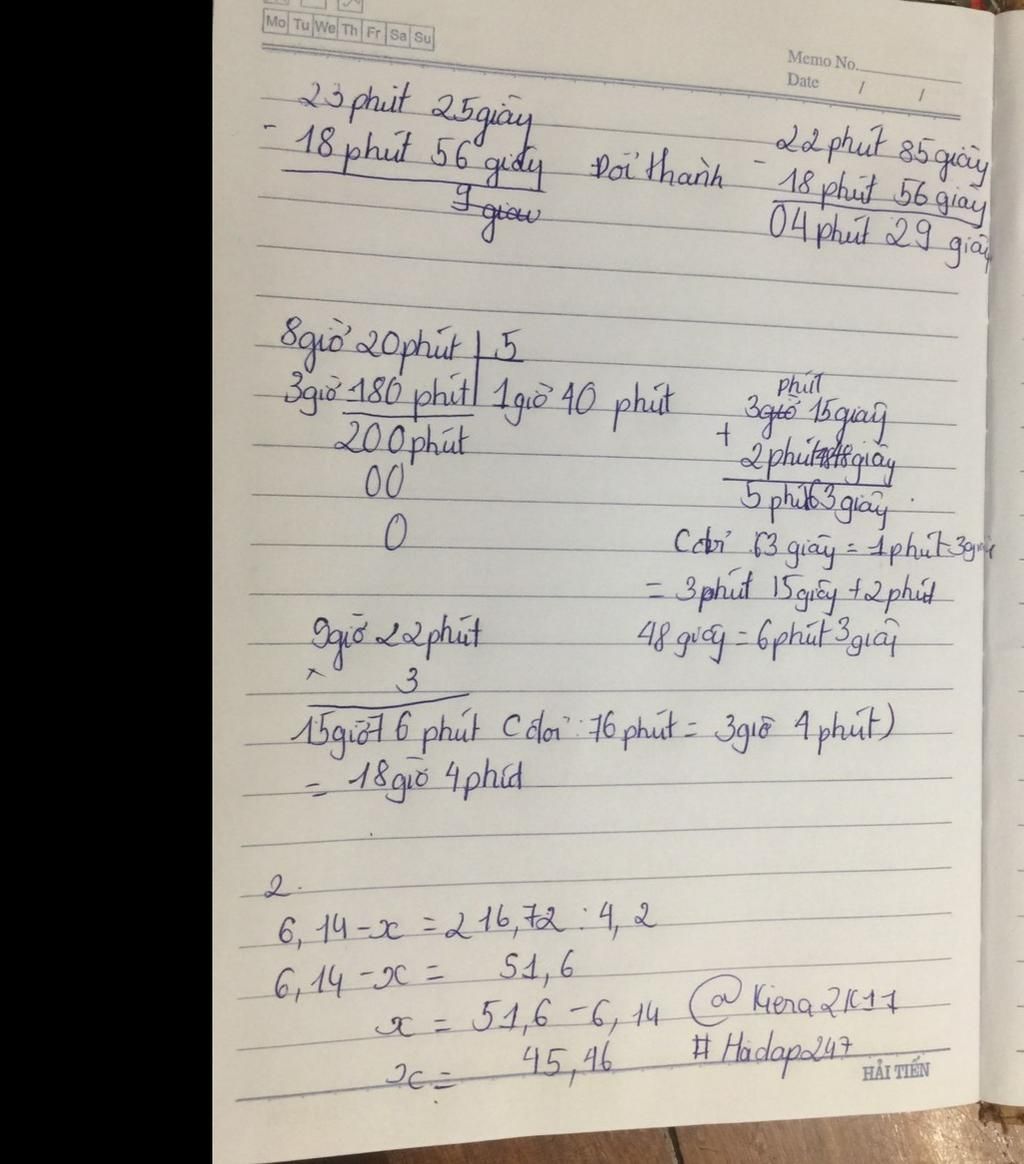 Mo Tu We Th Fr Sa Su
Memo No.
Date / /
23 phút 25 giây
- 18 phút 56 giây
9 giâu
Đổi thành
22 phút 85 giây
- 18 phút 56 giây
04 phút 29 giây
8 giờ 20 phút | 5
3 giờ 180 phút | 1 giờ 40 phút
200 phút
00
0
phút
3 giờ 15 giây
+ 2 phút 48 giây
5 phút 63 giây
( đổi 63 giây = 1 phút 3 giây
= 3 phút 15 giây + 2 phút
48 giây = 6 phút 3 giây
9 giờ 22 phút
× 3
15 giờ 76 phút ( đổi : 76 phút = 3 giờ 4 phút )
= 18 giờ 4 phút
2.
6,14 - x = 216,72 : 4,2
6,14 - x = 51,6
x = 51,6 - 6,14
x = 45,46
@Kiera2K11
#Hoidap247
HẢI TIẾN